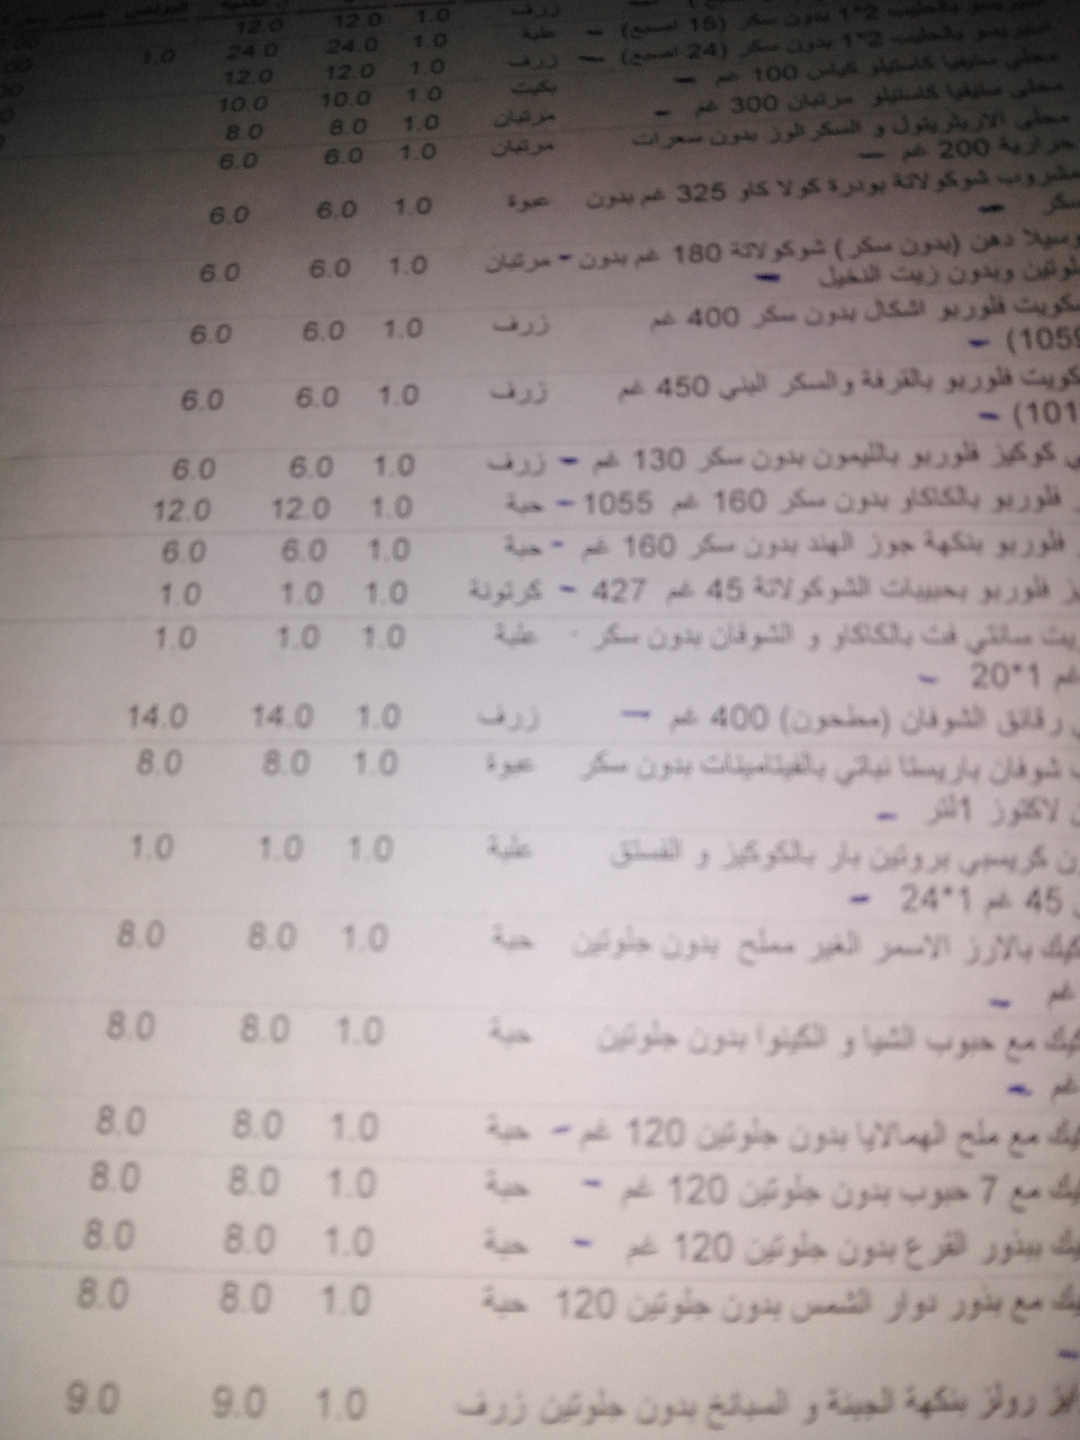 زرف 1.0 12.0 12.0
اسبريسو بالحليب 2*1 بدون سكر (15 اصبع) - علبة 1.0 24.0 24.0 1.0
اسبريسو بالحليب 2*1 بدون سكر (24 اصبع) - زرف 1.0 12.0 12.0
محلى ستيفيا كاستيلو كياس 100 غم - بكيت 1.0 10.0 10.0
محلى ستيفيا كاستيلو مرتبان 300 غم - مرتبان 1.0 8.0 8.0
محلى الاريثريتول و السكرالوز بدون سعرات مرتبان 1.0 6.0 6.0
حرارية 200 غم -
مشروب شوكولاتة بودرة كولا كاو 325 غم بدون عبوة 1.0 6.0 6.0
سكر -
دهن (بدون سكر) شوكولاتة 180 غم بدون - مرتبان 1.0 6.0 6.0
وبدون زيت النخيل -
فلوربو اشكال بدون سكر 400 غم زرف 1.0 6.0 6.0
-
فلوربو بالقرفة والسكر البني 450 غم زرف 1.0 6.0 6.0
-
كوكيز فلوربو بالليمون بدون سكر 130 غم - زرف 1.0 6.0 6.0
فلوربو بالكاكاو بدون سكر 160 غم 1055 - حبة 1.0 12.0 12.0
فلوربو بنكهة جوز الهند بدون سكر 160 غم - حبة 1.0 6.0 6.0
فلوربو بحبيبات الشوكولاتة 45 غم 427 - كرتونة 1.0 1.0 1.0
سانتي فت بالكاكاو و الشوفان بدون سكر علبة 1.0 1.0 1.0
غم 1*20 -
رقائق الشوفان (مطحون) 400 غم - زرف 1.0 14.0 14.0
شوفان باريستا نباتي بالفيتامينات بدون سكر عبوة 1.0 8.0 8.0
لاكتوز 1لتر -
كريسبي بروتين بار بالكوكيز و الفستق علبة 1.0 1.0 1.0
45 غم 1*24 -
بالارز الاسمر الغير مملح بدون جلوتين حبة 1.0 8.0 8.0
غم -
مع حبوب الشيا و الكينوا بدون جلوتين حبة 1.0 8.0 8.0
غم -
مع ملح الهمالايا بدون جلوتين 120 غم - حبة 1.0 8.0 8.0
مع 7 حبوب بدون جلوتين 120 غم - حبة 1.0 8.0 8.0
ببذور القرع بدون جلوتين 120 غم - حبة 1.0 8.0 8.0
مع بذور دوار الشمس بدون جلوتين 120 حبة 1.0 8.0 8.0
-
رولز بنكهة الجبنة و السبانخ بدون جلوتين زرف 1.0 9.0 9.0